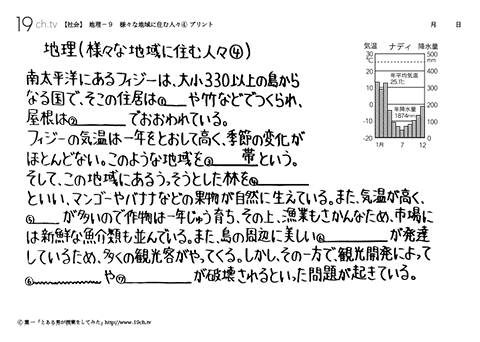 19ch.tv 【社会】 地理－9 様々な地域に住む人々④ プリント 月 日
地理（様々な地域に住む人々④）
南太平洋にあるフィジーは、大小330以上の島から
なる国で、そこの住居は①＿＿や竹などでつくられ、
屋根は②＿＿でおおわれている。
フィジーの気温は一年をとおして高く、季節の変化が
ほとんどない。このような地域を③＿＿帯という。
そして、この地域にあるうっそうとした林を④＿＿
といい、マンゴーやバナナなどの果物が自然に生えている。また、気温が高く、
⑤＿＿が多いので作物は一年じゅう育ち、その上、漁業もさかんなため、市場に
は新鮮な魚介類も並んでいる。また、島の周辺に美しい⑥＿＿が発達
しているため、多くの観光客がやってくる。しかし、その一方で、観光開発によって
⑥＿＿や⑦＿＿が破壊されるといった問題が起きている。
気温 ナディ 降水量
30 500
℃ mm
20 400
10 年平均気温 300
25.1℃
0 200
-10 年降水量 100
1874mm
-20
-30 0
1月 7 12
© 葉一「とある男が授業をしてみた」http://www.19ch.tv